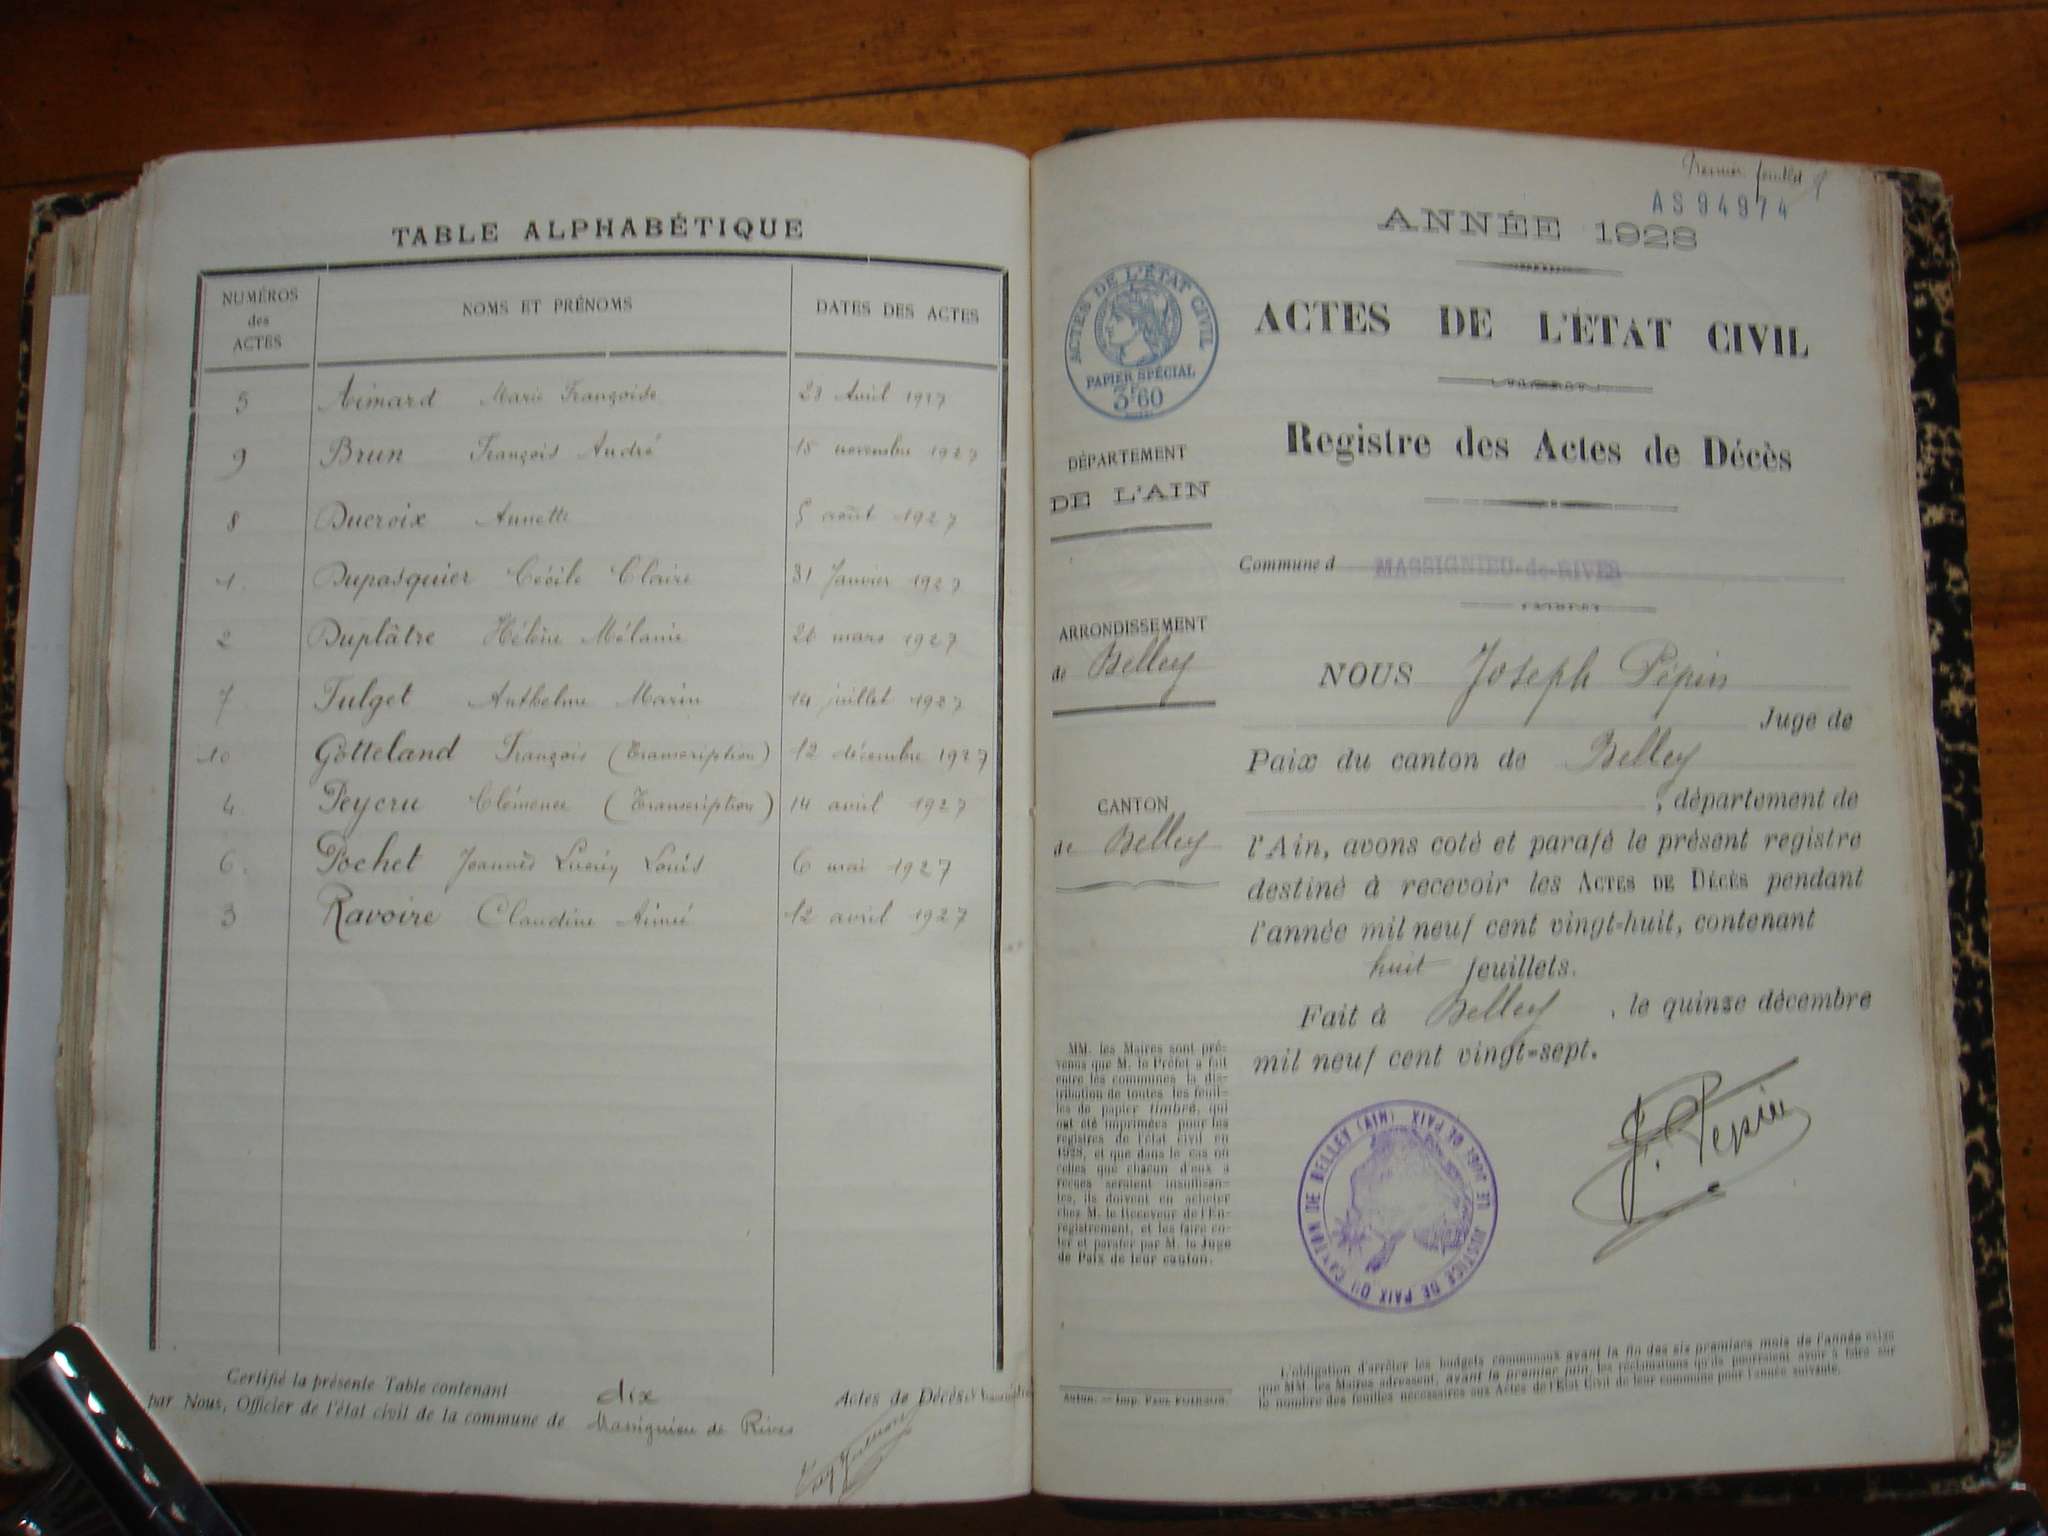 TABLE ALPHABÉTIQUE
NUMÉROS des ACTES NOMS ET PRÉNOMS DATES DES ACTES
5 Aimard Marie Françoise 28 Avril 1927
9 Brun François André 15 novembre 1927
8 Ducroix Annette 5 août 1927
1. Dupasquier Cécile Claire 31 Janvier 1927
2 Duplâtre Hélène Mélanie mars 1927
7 Fulget Anthelme Marin 14 juillet 1927
10 Gotteland François (Transcription) 12 décembre 1927
4. Peycru Clémence (Transcription) 14 avril 1927
6. Pochet Joannès Louis 6 mai 1927
3 Ravoire Claudine Aimée 12 avril 1927
Certifié la présente Table contenant dix Actes de Décès
par Nous, Officier de l'état civil de la commune de Massignieu de Rives
Premier feuillet
AS 94974
ANNÉE 1928
ACTES DE L'ÉTAT CIVIL
PAPIER SPÉCIAL
3F60
ACTES DE L'ÉTAT CIVIL
Registre des Actes de Décès
DÉPARTEMENT
DE L'AIN
Commune d MASSIGNIEU-de-RIVES
ARRONDISSEMENT
de Belley
NOUS Joseph Pépin
Juge de
Paix du canton de Belley
, département de
CANTON
de Belley
l'Ain, avons coté et parafé le présent registre
destiné à recevoir les ACTES DE DÉCÈS pendant
l'année mil neuf cent vingt-huit, contenant
huit feuillets.
Fait à Belley, le quinze décembre
mil neuf cent vingt-sept.
MM. les Maires sont pré-
venus que M. le Préfet a fait
entre les communes la dis-
tribution de toutes les feuil-
les de papier timbré, qui
ont été imprimées pour les
registres de l'état civil en
1928, et que dans le cas où
celles que chacun d'eux a
reçues seraient insuffisan-
tes, ils doivent en acheter
chez M. le Receveur de l'En-
registrement, et les faire co-
ter et parafer par M. le Juge
de Paix de leur canton.
J. Pépin
LE JUGE DE PAIX
JUSTICE DE PAIX DU CANTON DE BELLEY (AIN)
L'obligation d'arrêter les budgets communaux avant la fin des six premiers mois de l'année exige
que MM. les Maires adressent, avant le premier juin, les réclamations qu'ils pourraient avoir à faire sur
le nombre des feuilles nécessaires aux Actes de l'État Civil de leur commune pour l'année suivante.
Autun. — Imp. PAUL